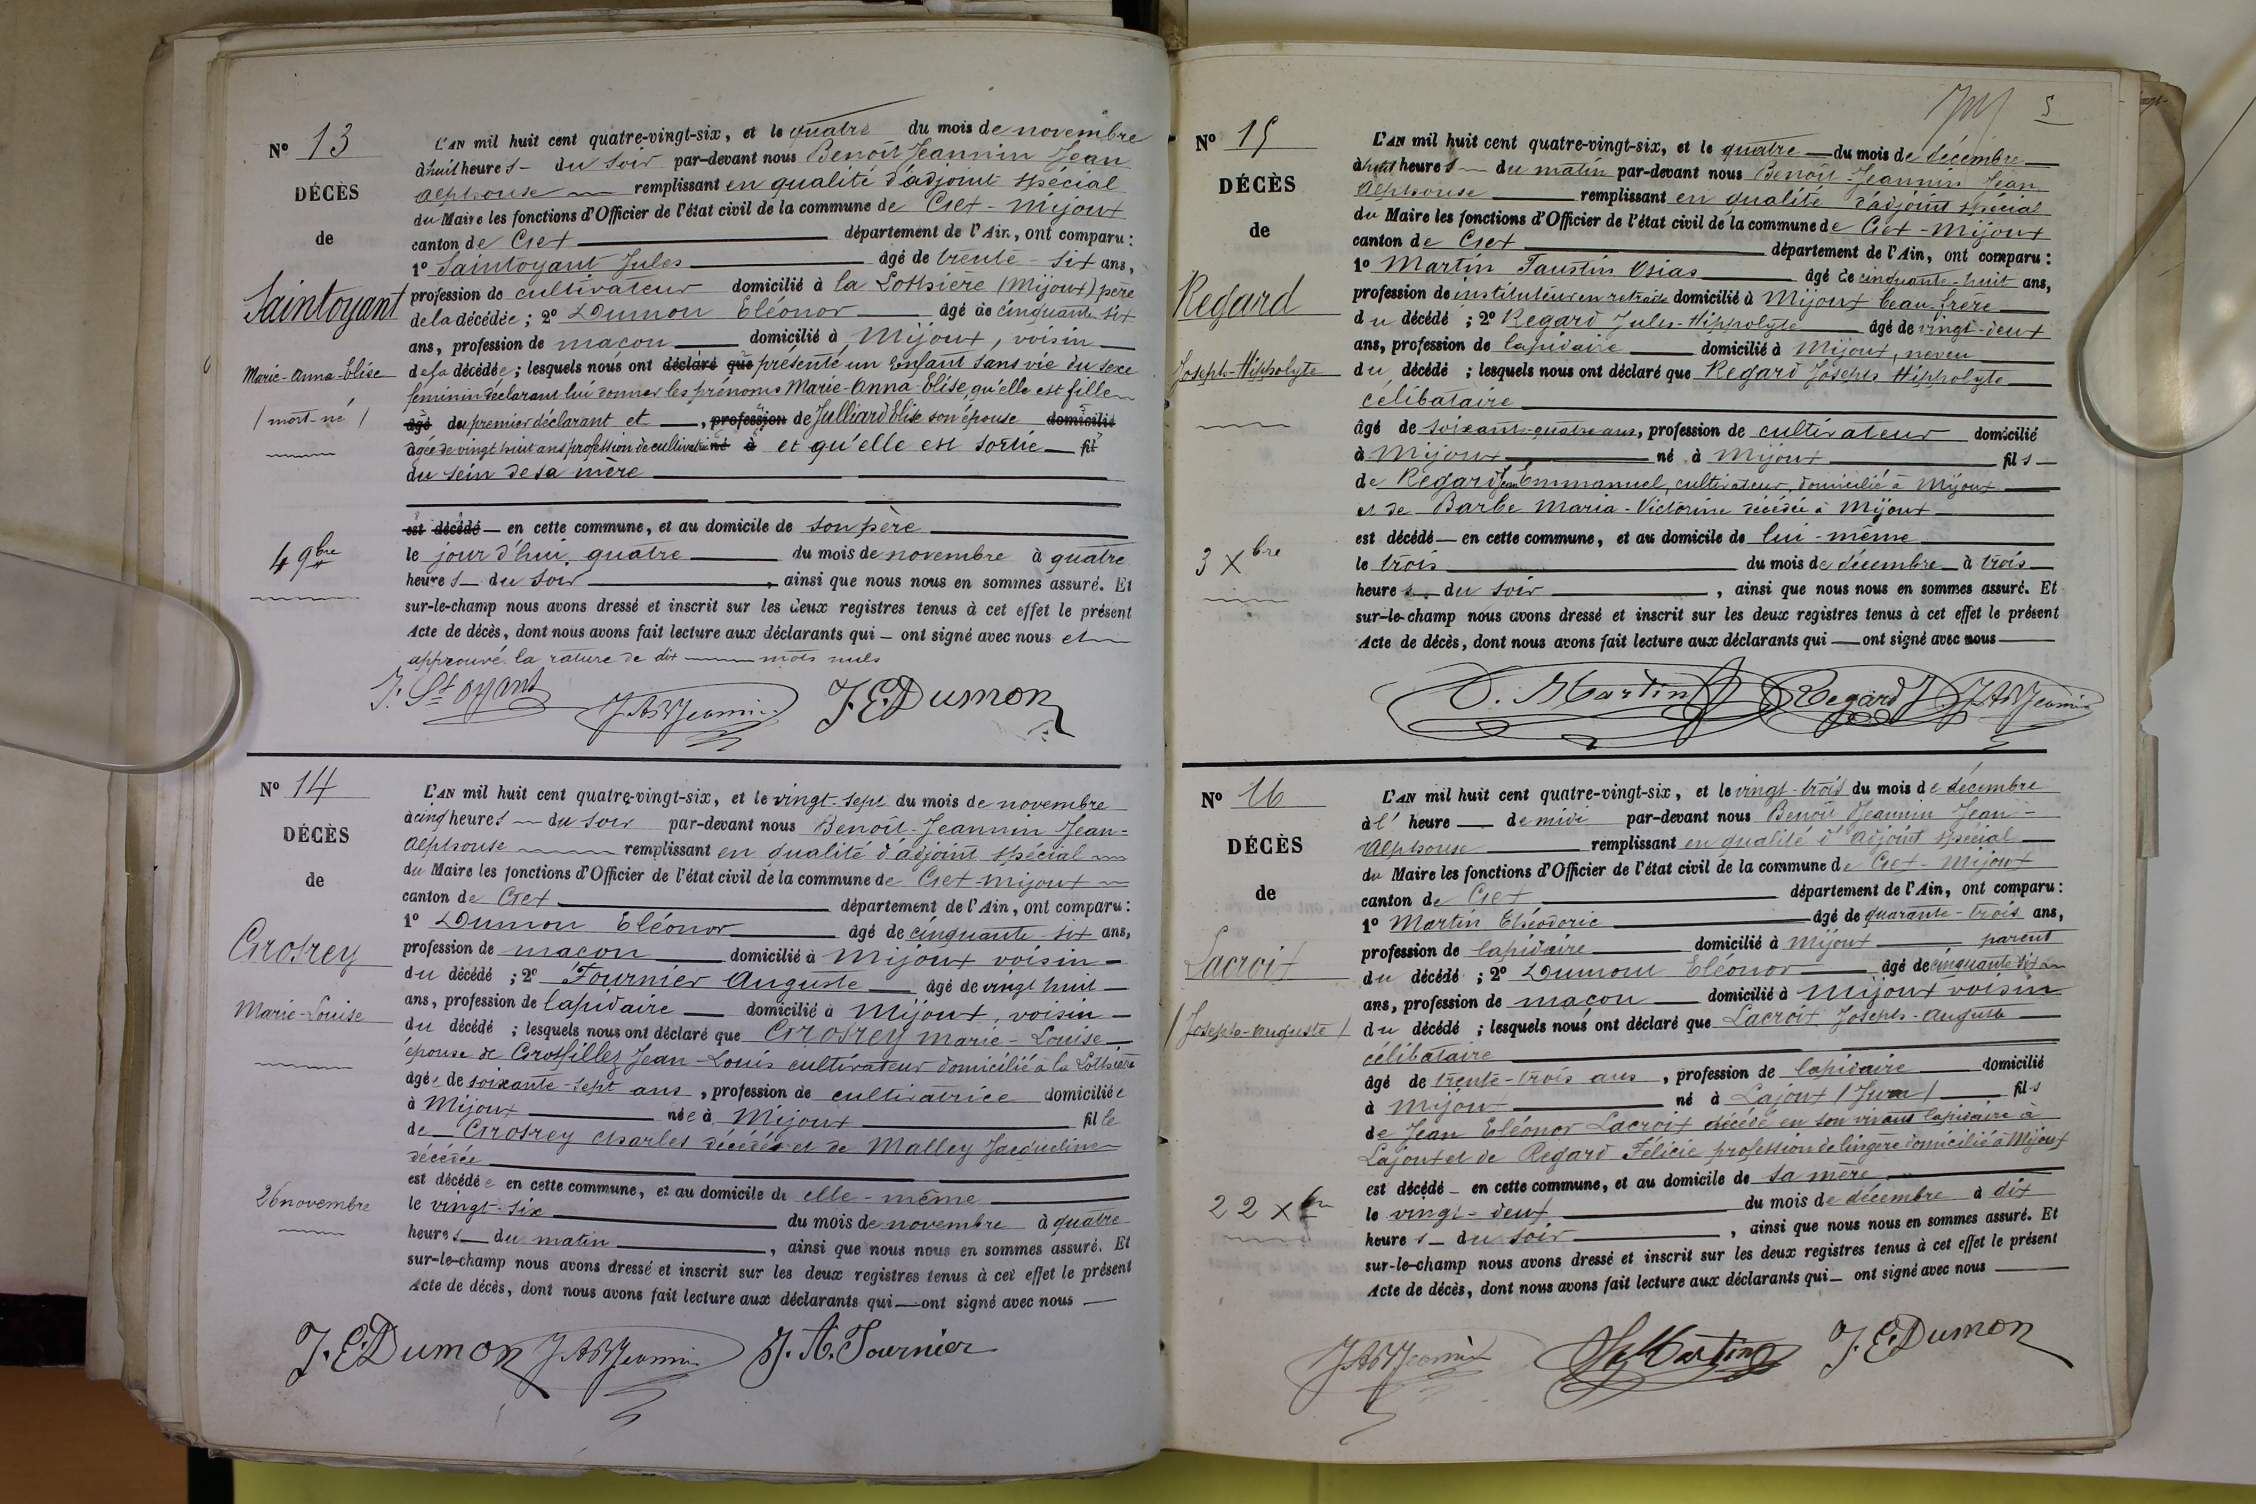 Nº 13
DÉCÈS
de
Saintoyant
Marie-Anna-Elise
/ mort-né /
4 9bre
L'AN mil huit cent quatre-vingt-six, et le quatre du mois de novembre
à huit heures du soir par-devant nous Benoît-Jeannin Jean
Alphonse remplissant en qualité d'adjoint spécial
du Maire les fonctions d'Officier de l'état civil de la commune de Gex-Mijoux
canton de Gex département de l'Ain, ont comparu :
1º Saintoyant Jules âgé de trente-six ans,
profession de cultivateur domicilié à la Lothière (Mijoux) père
de la décédée ; 2º Dumon Eléonor âgé de cinquante-six
ans, profession de maçon domicilié à Mijoux, voisin
de la décédée ; lesquels nous ont déclaré que présenté un enfant sans vie du sexe
féminin déclarant lui donner les prénoms Marie-Anna-Elise, qu'elle est fille
âgé du premier déclarant et , profession de Julliard Elise son épouse domicilié
âgée de vingt huit ans profession de cultivatrice né à et qu'elle est sortie fil
du sein de sa mère
est décédé en cette commune, et au domicile de son père
le jour d'hui quatre du mois de novembre à quatre
heures du soir , ainsi que nous nous en sommes assuré. Et
sur-le-champ nous avons dressé et inscrit sur les deux registres tenus à cet effet le présent
Acte de décès, dont nous avons fait lecture aux déclarants qui ont signé avec nous et
approuvé la rature de dix mots nuls
J. St Oyant J.A.B.Jeannin J. E. Dumon
Nº 14
DÉCÈS
de
Grosrey
Marie-Louise
26 novembre
L'AN mil huit cent quatre-vingt-six, et le vingt-sept du mois de novembre
à cinq heures du soir par-devant nous Benoît-Jeannin Jean-
Alphonse remplissant en qualité d'adjoint spécial
du Maire les fonctions d'Officier de l'état civil de la commune de Gex-Mijoux
canton de Gex département de l'Ain, ont comparu :
1º Dumon Eléonor âgé de cinquante-six ans,
profession de maçon domicilié à Mijoux voisin
du décédé ; 2º Fournier Auguste âgé de vingt huit
ans, profession de lapidaire domicilié à Mijoux, voisin
du décédé ; lesquels nous ont déclaré que Grosrey Marie-Louise
épouse de Grosfillez Jean-Louis cultivateur domicilié à la Lothière
âgée de soixante-sept ans , profession de cultivatrice domiciliée
à Mijoux née à Mijoux fille
de Grosrey Charles décédé et de Malley Jacqueline
décédée
est décédée en cette commune, et au domicile de elle-même
le vingt-six du mois de novembre à quatre
heures du matin , ainsi que nous nous en sommes assuré. Et
sur-le-champ nous avons dressé et inscrit sur les deux registres tenus à cet effet le présent
Acte de décès, dont nous avons fait lecture aux déclarants qui ont signé avec nous
J. E. Dumon J.A.B.Jeannin J. A. Fournier
5
Nº 15
DÉCÈS
de
Regard
Joseph-Hippolyte
3 Xbre
L'AN mil huit cent quatre-vingt-six, et le quatre du mois de décembre
à huit heures du matin par-devant nous Benoît-Jeannin Jean
Alphonse remplissant en qualité d'adjoint spécial
du Maire les fonctions d'Officier de l'état civil de la commune de Gex-Mijoux
canton de Gex département de l'Ain, ont comparu :
1º Martin Faustin Osias âgé de cinquante-huit ans,
profession de instituteur en retraite domicilié à Mijoux beau-frère
du décédé ; 2º Regard Jules-Hippolyte âgé de vingt-deux
ans, profession de lapidaire domicilié à Mijoux, neveu
du décédé ; lesquels nous ont déclaré que Regard Joseph Hippolyte
célibataire
âgé de soixante-quatre ans, profession de cultivateur domicilié
à Mijoux né à Mijoux fils
de Regard Jean Emmanuel, cultivateur, domicilié à Mijoux
et de Barbe Maria-Victorine décédée à Mijoux
est décédé en cette commune, et au domicile de lui-même
le trois du mois de décembre à trois
heures du soir , ainsi que nous nous en sommes assuré. Et
sur-le-champ nous avons dressé et inscrit sur les deux registres tenus à cet effet le présent
Acte de décès, dont nous avons fait lecture aux déclarants qui ont signé avec nous
O. Martin Regard J. J.A.B.Jeannin
Nº 16
DÉCÈS
de
Lacroix
/ Joseph-Auguste /
22 Xbre
L'AN mil huit cent quatre-vingt-six, et le vingt-trois du mois de décembre
à l' heure de midi par-devant nous Benoît Jeannin Jean-
Alphonse remplissant en qualité d'adjoint spécial
du Maire les fonctions d'Officier de l'état civil de la commune de Gex-Mijoux
canton de Gex département de l'Ain, ont comparu :
1º Martin Théodoric âgé de quarante-trois ans,
profession de lapidaire domicilié à Mijoux parent
du décédé ; 2º Dumon Eléonor âgé de cinquante six
ans, profession de maçon domicilié à Mijoux voisin
du décédé ; lesquels nous ont déclaré que Lacroix Joseph-Auguste
célibataire
âgé de trente-trois ans , profession de lapidaire domicilié
à Mijoux né à Lajoux / Jura / fils
de Jean Eléonor Lacroix décédé en son vivant lapidaire à
Lajoux et de Regard Félicie profession de lingère domicilié à Mijoux
est décédé en cette commune, et au domicile de sa mère
le vingt-deux du mois de décembre à dix
heures du soir , ainsi que nous nous en sommes assuré. Et
sur-le-champ nous avons dressé et inscrit sur les deux registres tenus à cet effet le présent
Acte de décès, dont nous avons fait lecture aux déclarants qui ont signé avec nous
J.A.B.Jeannin Martin J. E. Dumon